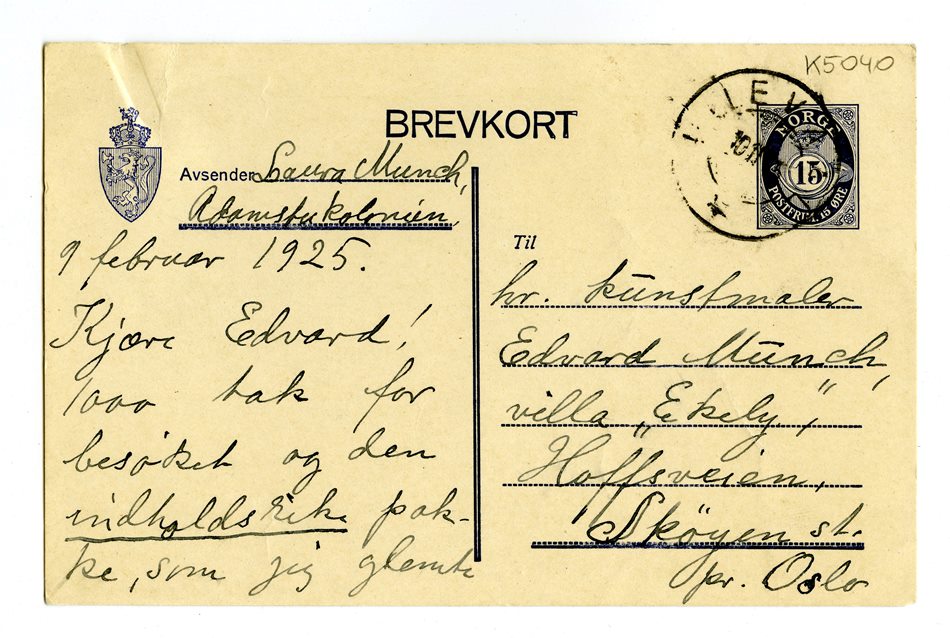 K5040
BREVKORT
NORGE
15
POSTFRIM. 15 ØRE
Avsender Laura Munch,
Adamstukolonien,
9 februar 1925.
Kjære Edvard!
1000 tak for
besøket og den
indholdsrike pak-
ke, som jeg glemte
Til
hr. kunstmaler
Edvard Munch,
villa „Ekely”,
Hoffsveien,
Skøyen st.
pr. Oslo